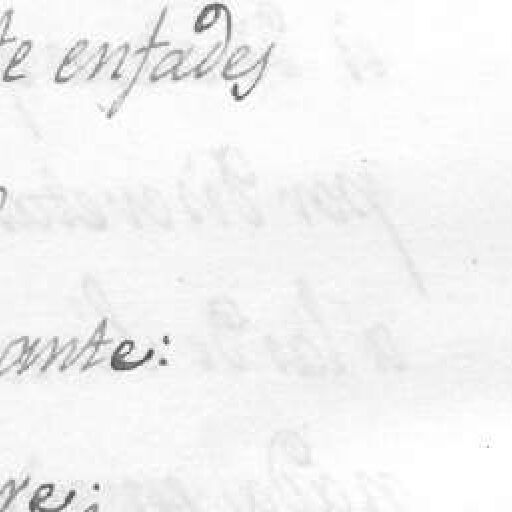 te enfades
ante:
re;